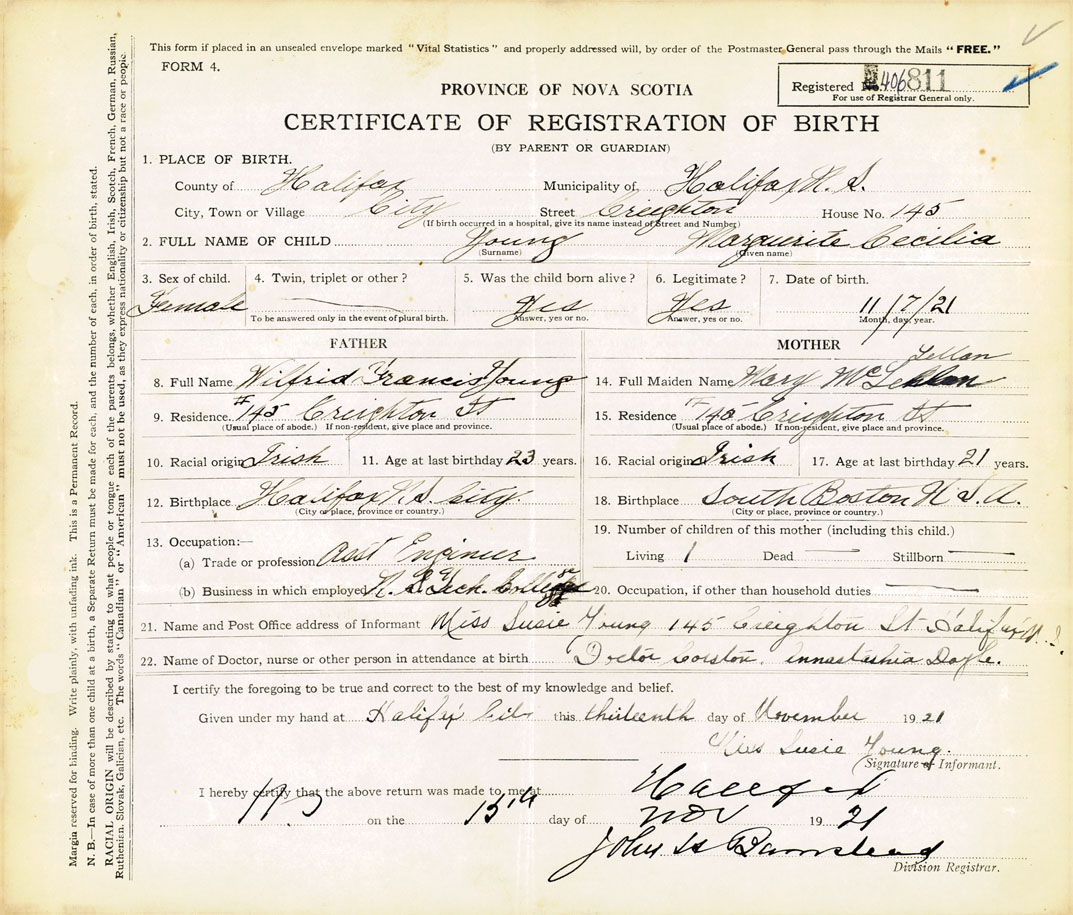 This form if placed in an unsealed envelope marked "Vital Statistics" and properly addressed will, by order of the Postmaster General pass through the Mails "FREE."
FORM 4.
Registered No. 406811
For use of Registrar General only.
PROVINCE OF NOVA SCOTIA
CERTIFICATE OF REGISTRATION OF BIRTH
(BY PARENT OR GUARDIAN)
1. PLACE OF BIRTH.
County of Halifax Municipality of Halifax N. S.
City, Town or Village City Street Creighton House No. 145
(If birth occurred in a hospital, give its name instead of Street and Number)
2. FULL NAME OF CHILD Young Marguirite Cecilia
(Surname) (Given name)
3. Sex of child. 4. Twin, triplet or other? 5. Was the child born alive? 6. Legitimate? 7. Date of birth.
Female Yes Yes 11/7/21
To be answered only in the event of plural birth. Answer, yes or no. Answer, yes or no. Month, day, year.
FATHER MOTHER
Lellan
8. Full Name Wilfrid Francis Young 14. Full Maiden Name Mary Mc
9. Residence #145 Creighton St 15. Residence # 145 Creighton St
(Usual place of abode.) If non-resident, give place and province. (Usual place of abode.) If non-resident, give place and province.
10. Racial origin Irish 11. Age at last birthday 23 years. 16. Racial origin Irish 17. Age at last birthday 21 years.
12. Birthplace Halifax N. S. City. 18. Birthplace South Boston U. S. A.
(City or place, province or country.) (City or place, province or country.)
13. Occupation:— 19. Number of children of this mother (including this child.)
(a) Trade or profession Asst Engineer Living 1 Dead — Stillborn —
(b) Business in which employed N. S. Tech. College 20. Occupation, if other than household duties —
21. Name and Post Office address of Informant Miss Susie Young 145 Creighton St Halifax N. S.
22. Name of Doctor, nurse or other person in attendance at birth Doctor Corston. Annastashia Doyle.
I certify the foregoing to be true and correct to the best of my knowledge and belief.
Given under my hand at Halifax City this thirteenth day of November 1921
Miss Susie Young.
(Signature of Informant.
I hereby certify that the above return was made to me at Halifax
on the 15th day of Nov 1921
John H Barnstead
Division Registrar.
Margin reserved for binding. Write plainly, with unfading ink. This is a Permanent Record.
N. B.—In case of more than one child at a birth, a Separate Return must be made for each, and the number of each, in order of birth, stated.
RACIAL ORIGIN will be described by stating to what people or tongue each of the parents belongs, whether English, Irish, Scotch, French, German, Russian,
Ruthenian, Slovak, Galician, etc. The words "Canadian" or "American" must not be used, as they express nationality or citizenship but not a race or people.